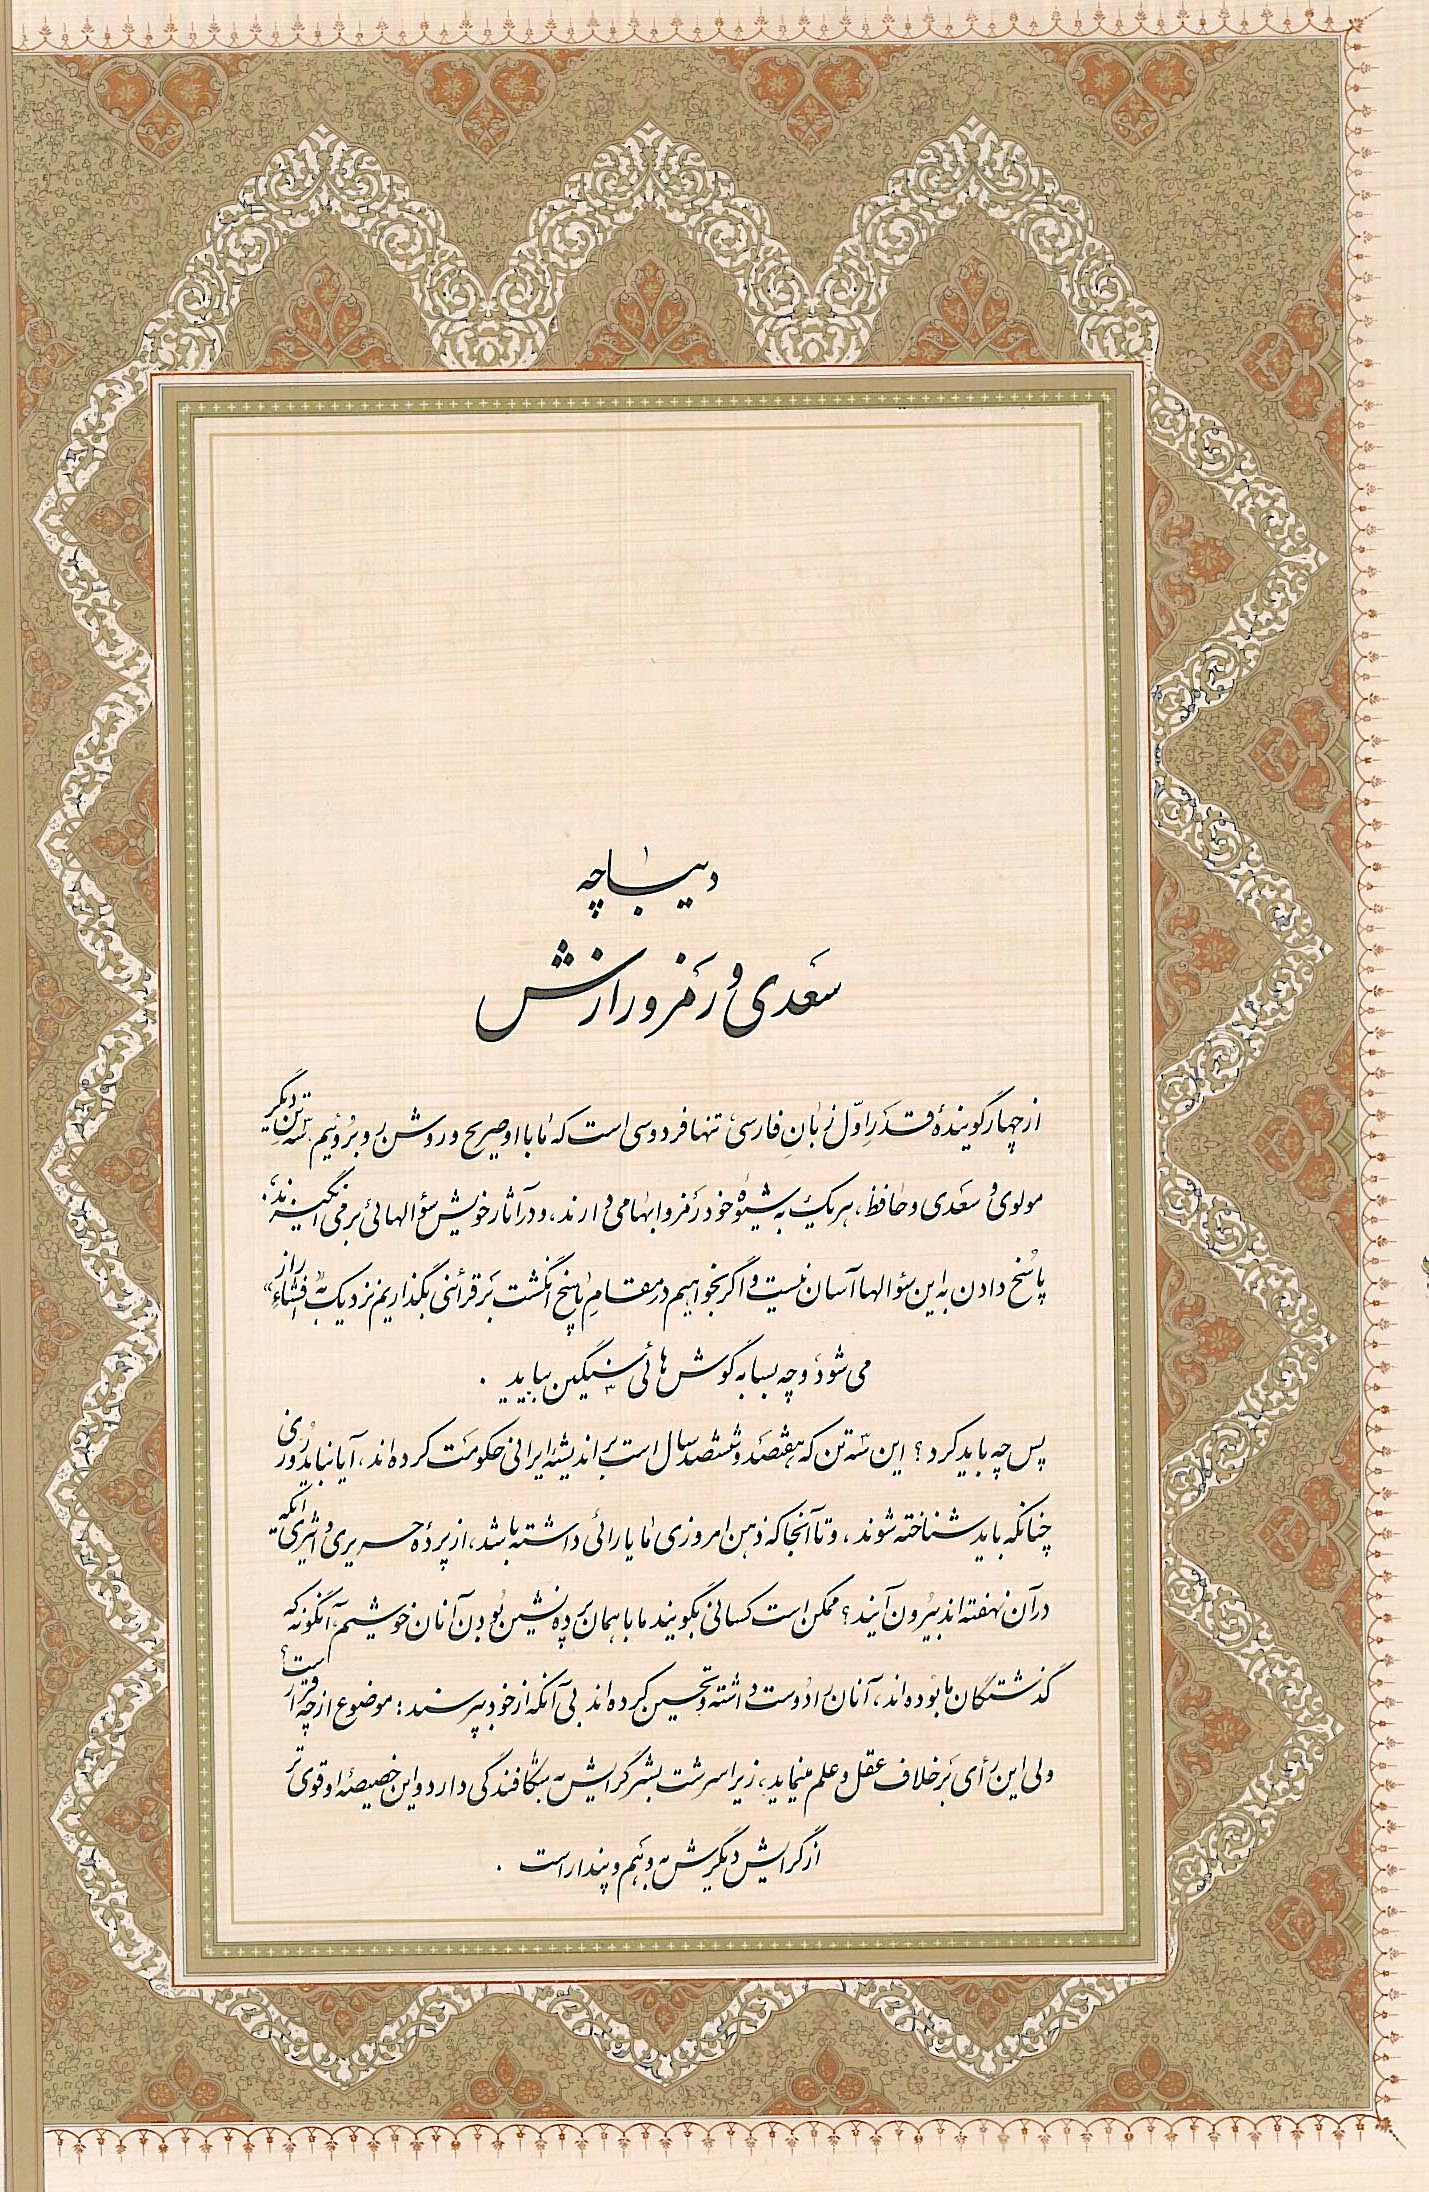 دیباچه
سعدی و رمز و رازش
از چهار گویندهٔ قدر اوّل زبان فارسی، تنها فردوسی است که ما با او صریح و روشن روبروئیم. سه تن دیگر
مولوی و سعدی و حافظ، هر یک به شیوهٔ خود رمز و ابهامی دارند، و در آثار خویش سؤالهائی برمی‌انگیزند؛
پاسخ دادن به این سؤالها آسان نیست و اگر بخواهیم در مقام پاسخ انگشت بر قرائنی بگذاریم نزدیک به «افشاءِ راز»
می‌شود، و چه بسا به گوش‌هائی سنگین بیاید.
پس چه باید کرد؟ این سه تن که هفتصد و ششصد سال است بر اندیشهٔ ایرانی حکومت کرده‌اند، آیا نباید روزی
چنانکه باید شناخته شوند، و تا آنجا که ذهن امروزی ما یارائی داشته باشد، از پردهٔ حریری و اثیری‌ای که
در آن نهفته‌اند بیرون آیند؟ ممکن است کسانی بگویند ما با همان پرده‌نشین بودن آنان خوشیم، آنگونه که
گذشتگان ما بوده‌اند، آنان را دوست داشته و تحسین کرده‌اند بی‌آنکه از خود بپرسند: موضوع از چه قرار است؟
ولی این رأی بر خلاف عقل و علم مینماید، زیرا سرشت بشر گرایش به شکافندگی دارد و این خصیصهٔ او قوی‌تر
از گرایش دیگرش به وهم و پندار است.